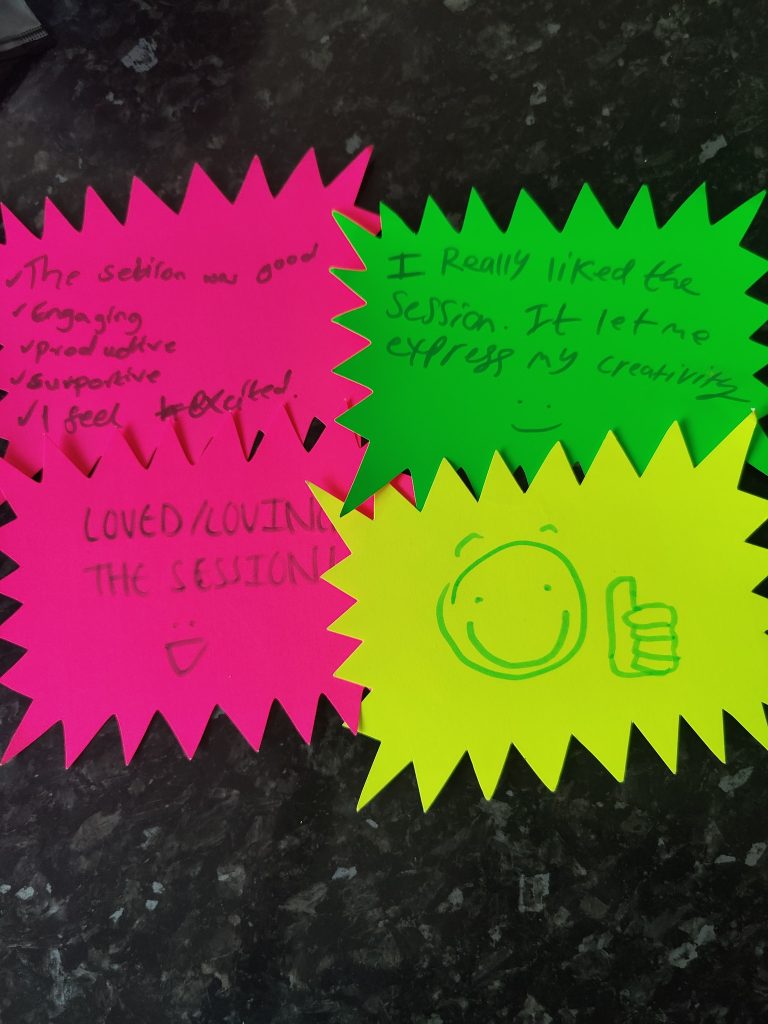 ✓The sebiron was good
✓Engaging
✓productive
✓surportive
✓I feel excited.
I Really liked the
session. It let me
express my creativity
LOVED/LOVING
THE SESSION!